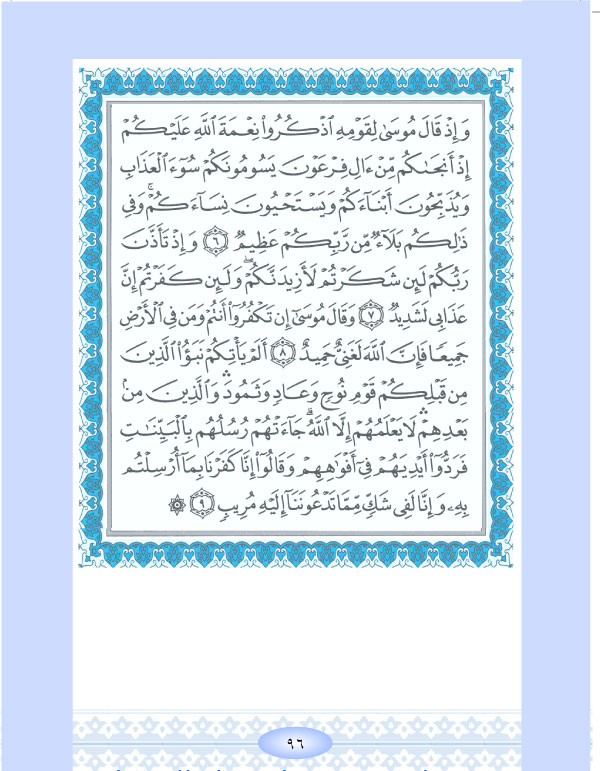 وَإِذْ قَالَ مُوسَىٰ لِقَوْمِهِ ٱذْكُرُوا۟ نِعْمَةَ ٱللَّهِ عَلَيْكُمْ
إِذْ أَنجَىٰكُم مِّنْ ءَالِ فِرْعَوْنَ يَسُومُونَكُمْ سُوٓءَ ٱلْعَذَابِ
وَيُذَبِّحُونَ أَبْنَآءَكُمْ وَيَسْتَحْيُونَ نِسَآءَكُمْ ۚ وَفِى
ذَٰلِكُم بَلَآءٌ مِّن رَّبِّكُمْ عَظِيمٌ ٦ وَإِذْ تَأَذَّنَ
رَبُّكُمْ لَئِن شَكَرْتُمْ لَأَزِيدَنَّكُمْ ۖ وَلَئِن كَفَرْتُمْ إِنَّ
عَذَابِى لَشَدِيدٌ ٧ وَقَالَ مُوسَىٰٓ إِن تَكْفُرُوٓا۟ أَنتُمْ وَمَن فِى ٱلْأَرْضِ
جَمِيعًا فَإِنَّ ٱللَّهَ لَغَنِىٌّ حَمِيدٌ ٨ أَلَمْ يَأْتِكُمْ نَبَؤُا۟ ٱلَّذِينَ
مِن قَبْلِكُمْ قَوْمِ نُوحٍ وَعَادٍ وَثَمُودَ ۛ وَٱلَّذِينَ مِنۢ
بَعْدِهِمْ ۛ لَا يَعْلَمُهُمْ إِلَّا ٱللَّهُ ۚ جَآءَتْهُمْ رُسُلُهُم بِٱلْبَيِّنَٰتِ
فَرَدُّوٓا۟ أَيْدِيَهُمْ فِىٓ أَفْوَٰهِهِمْ وَقَالُوٓا۟ إِنَّا كَفَرْنَا بِمَآ أُرْسِلْتُم
بِهِۦ وَإِنَّا لَفِى شَكٍّ مِّمَّا تَدْعُونَنَآ إِلَيْهِ مُرِيبٍ ٩
٩٦